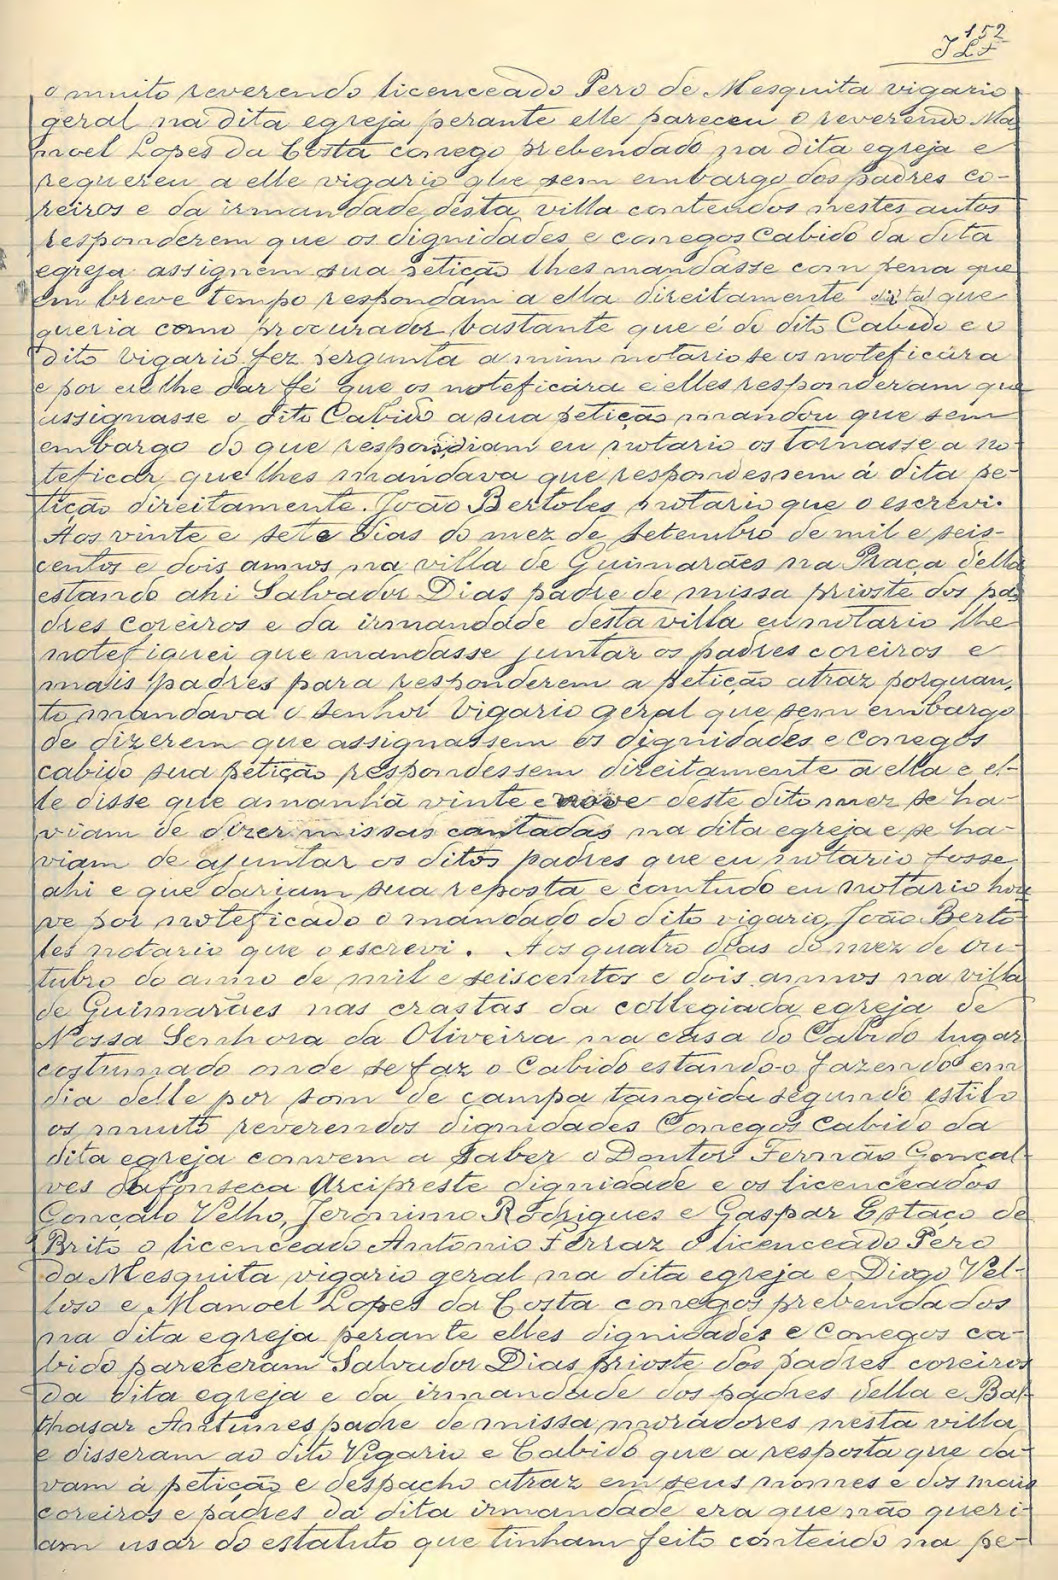 152
JLF
o muito reverendo licenceado Pero de Mesquita vigario
geral na dita egreja perante elle pareceu o reverendo Ma-
noel Lopes da Costa conego prebendado na dita egreja e
requereu a elle vigario que sem embargo dos padres co-
reiros e da irmandade desta villa conteudos nestes autos
responderem que os dignidades e conegos Cabido da dita
egreja assignem sua petição lhes mandasse com pena que
em breve tempo respondam a ella direitamente que
queria como procurador bastante que é do dito Cabido e o
dito vigario fez pergunta a mim notario se os noteficára
e por eu lhe dar fé que os noteficára e elles responderam que
assignasse o dito Cabido a sua petição mandou que sem
embargo do que respondiam eu notario os tornasse a no-
teficar que lhes mandava que respondessem á dita pe-
tição direitamente. João Bertoles notario que o escrevi.
Aos vinte e sete dias do mez de setembro de mil e seis-
centos e dois annos na villa de Guimarães na Praça della
estando ahi Salvador Dias padre de missa prioste dos pa-
dres coreiros e da irmandade desta villa eu notario lhe
notefiquei que mandasse juntar os padres coreiros e
mais padres para responderem a petição atraz porquan-
to mandava o senhor vigario geral que sem embargo
de dizerem que assignassem os dignidades e conegos
cabido sua petição respondessem direitamente a ella e el-
le disse que amanhã vinte e nove deste dito mez se ha-
viam de dizer missas cantadas na dita egreja e se ha-
viam de ajuntar os ditos padres que eu notario fosse
ahi e que dariam sua reposta e comtudo eu notario hou-
ve por noteficado o mandado do dito vigario, João Berto-
les notario que o escrevi. Aos quatro dias do mez de ou-
tubro do anno de mil e seiscentos e dois annos na villa
de Guimarães nas crastas da collegiada egreja de
Nossa Senhora da Oliveira na casa do Cabido lugar
costumado onde se faz o Cabido estando-o fazendo em
dia delle por som de campa tangida segundo estilo
os muito reverendos dignidades Conegos Cabido da
dita egreja convem a saber o Doutor Fernão Gonçal-
ves dafonseca Arcipreste dignidade e os licenceados
Gonçalo Velho, Jeronimo Rodrigues e Gaspar Estaço de
Brito o licenceado Antonio Ferraz o licenceado Pero
da Mesquita vigario geral na dita egreja e Diogo Vel-
loso e Manoel Lopes da Costa conegos prebendados
na dita egreja perante elles dignidades e conegos ca-
bido pareceram Salvador Dias prioste dos padres coreiros
da dita egreja e da irmandade dos padres della e Bal-
thasar Antunes padre de missa moradores nesta villa
e disseram ao dito Vigario e Cabido que a resposta que da-
vam á petição e despacho atraz em seus nomes e dos mais
coreiros e padres da dita irmandade era que não queri-
am usar do estatuto que tinham feito conteudo na pe-